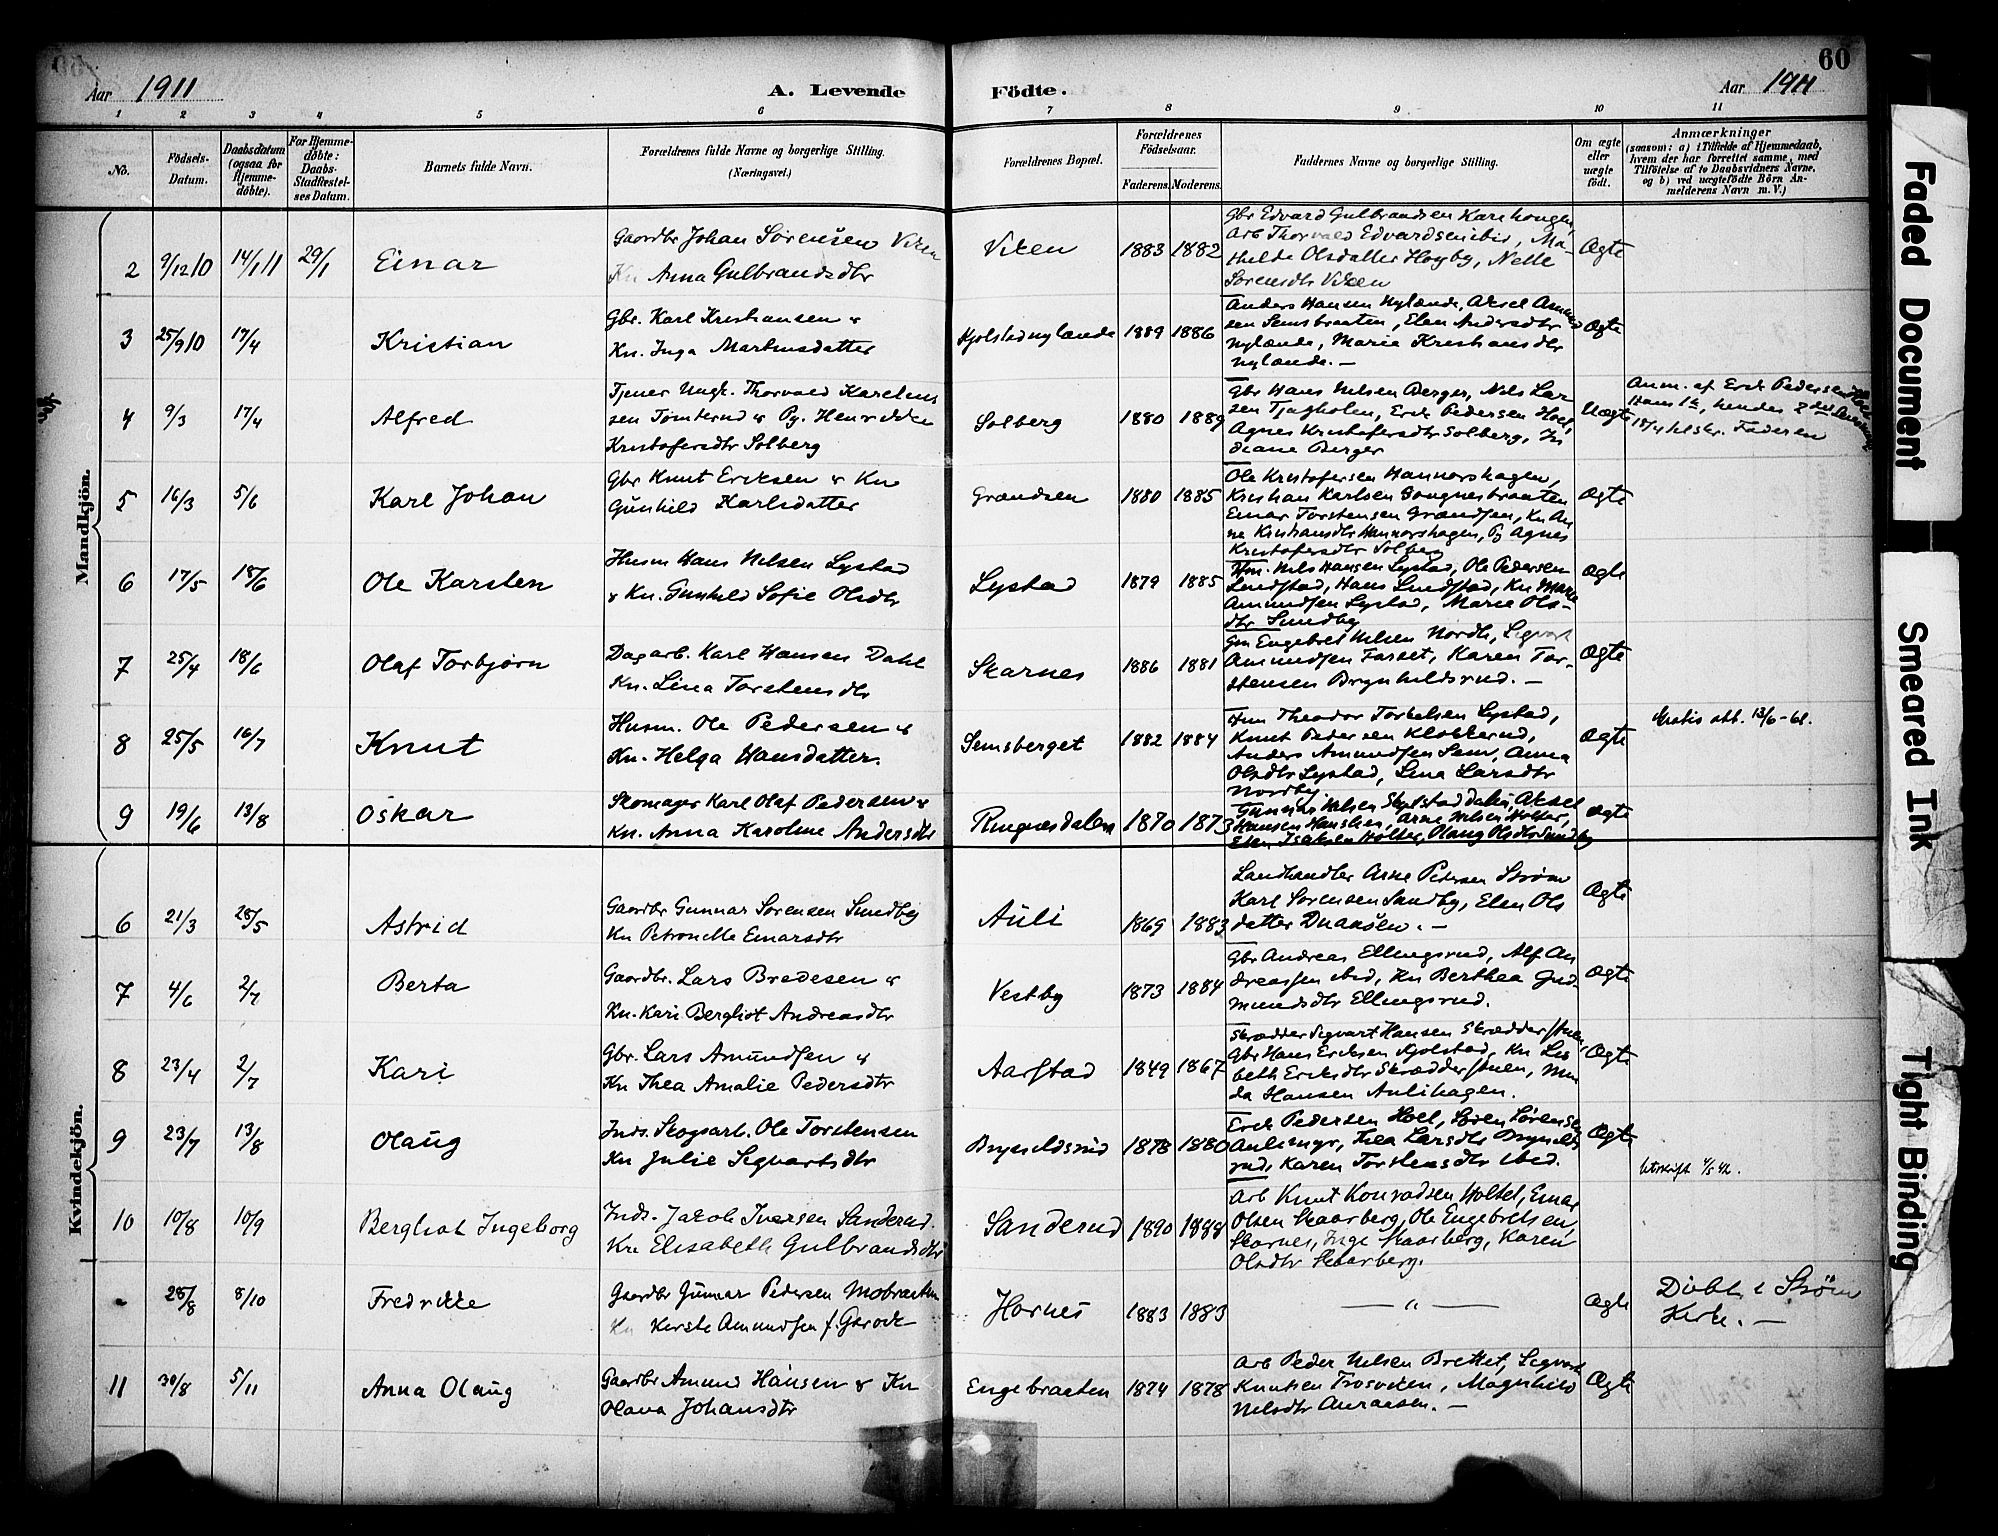 60
Aar 1911 A. Levende Födte. Aar 1911
1 2 3 4 5 6 7 8 9 10 11
No.
Födsels-Datum.
Daabsdatum (ogsaa for Hjemmedöbte).
For Hjemmedöbte: Daabs-Stadfæstelses Datum.
Barnets fulde Navn.
Forældrenes fulde Navne og borgerlige Stilling.
(Næringsvei.)
Forældrenes Bopæl.
Forældrenes Födselsaar.
Faderens. Moderens.
Faddernes Navne og borgerlige Stilling.
Om ægte eller uægte födt.
Anmærkninger
(saasom: a) i Tilfælde af Hjemmedaab, hvem der har forrettet samme, med Tilföielse af to Daabsvidners Navne, og b) ved uægtefödte Börn Anmelderens Navn m. V.)
Mandkjön.
2 9/12 10 14/1 11 29/1 Einar
Gaardbr Johan Sörensen Viken
Kn Anna Gulbrandsdtr
Viken 1883 1882
Gbr Edvard Gulbrandsen Karehougen,
Arb Thorvald Edvardsen ibid, Ma-
thilde Olsdatter Högby, Nelle
Sörensdtr Viken
Ægte
3 25/9 10 17/4 Kristian
Gbr. Karl Kristiansen &
Kn. Inga Martinsdatter
Kjolstadnylænde 1889 1886
Anders Hansen Nylænde, Aksel Amund
sen Semsbraaten, Elen Andersdtr
Nylænde, Marie Kristiansdtr
Nylænde. —
Ægte
4 9/3 17/4 Alfred
Tjener Ungk. Thorvald Karelius
sen Tomterud & Pg. Henrikke
Kristofersdtr Solberg
Solberg 1880 1889
Gbr Hans Nilsen Berger, Nils Lar
sen Tjagholen, Erik Pedersen Hoel,
Agnes Kristofersdtr Solberg, In
diane Berger
Uægte
Anm. af Erik Pedersen Hoel
Hans 1ste, hendes 2den
18/4 tilskr. Faderen
5 16/3 5/6 Karl Johan
Gbr Knut Eriksen & Kn
Gunhild Karlsdatter
Grændsen 1880 1885
Ole Kristofersen Hannorshagen,
Kristian Karlsen Gougnesbraaten
Einar Torstensen Grændsen, Kn An
ne Kristiansdtr Hannorshagen, Pg Agnes
Kristofersdtr Solberg
Ægte
6 17/5 18/6 Ole Karsten
Husm Hans Nilsen Lystad
& Kn. Gunhild Sofie Olsdtr
Lystad 1879 1885
Hm. Nils Hansen Lystad, Ole Pedersen
Lundstad, Hans Lundstad, Kn Marie
Amundsen Lystad, Marie Ols-
dtr Sundby
Ægte
7 25/4 18/6 Olaf Torbjørn
Dagarb. Karl Hansen Dahl
Kn. Lina Torstensdtr
Skarnes 1886 1881
Gm Engebret Nilsen Nordli, Sigvart
Amundsen Farset, Karen Tor-
stensen Brynhildsrud. —
Ægte
8 25/5 16/7 Knut
Husm. Ole Pedersen &
Kn. Helga Hansdatter.
Semsberget 1882 1884
Hm Theodor Torkelsen Lystad,
Knut Pedersen Klokkerud,
Anders Amundsen Sem, Anna
Olsdtr Lystad, Lina Larsdtr
Nordby.
Ægte
Gratis att. 13/6-61.
9 19/6 13/8 Oskar
Skomager Karl Olaf Pedersen &
Kn. Anna Karoline Andersdtr
Ringnesdalen 1870 1873
Gunnar Nilsen Skjelstaddalen, Aksel
Hansen Hanslien, Arne Nilsen Holter,
Elen Isaksen Holter, Olaug Olsdtr Sundby
Ægte
Kvindekjön.
6 21/3 28/5 Astrid
Gaardbr Gunnar Sörensen Sundby
Kn Petronelle Einarsdtr
Auli 1869 1883
Landhandler Arne Pedersen Ström
Karl Sörensen Sandby, Elen Ols
datter Duaasen. —
Ægte
7 4/6 2/7 Berta
Gaardbr. Lars Bredesen &
Kn. Kari Bergliot Andreasdtr
Vestby 1873 1884
Gbr Andreas Ellingsrud, Alf An
dreassen ibid, Kn Berthea Gud-
mundsdtr Ellingsrud.
Ægte
8 23/4 2/7 Kari
Gbr. Lars Amundsen &
Kn Thea Amalie Pedersdtr
Aarstad 1849 1867
Skrædder Sigvart Hansen Skrædderstuen,
Gbr Hans Eriksen Kjolstad, Kn Lis
beth Eriksdtr Skrædderstuen, Min
da Hansen Aulihagen.
Ægte
9 23/7 13/8 Olaug
Inds. Skogsarb. Ole Torstensen
Kn Julie Sigvartsdtr
Brynildsrud 1878 1880
Erik Pedersen Hoel, Sören Sörensen
Aulimyr, Thea Larsdtr Brynilds
rud, Karen Torstensdtr ibid.
Ægte
Utskrift 4/5 42.
10 10/8 10/9 Bergliot Ingeborg
Inds. Jacob Iversen Sanderud.
Kn Elisabeth Gulbrandsdtr
Sanderud 1890 1888
Arb Knut Konradsen Holtet, Einar
Olsen Skaarberg, Ole Engebretsen,
Skarnes, Inga Skaarberg, Karen
Olsdtr Skaarberg.
- 28/8 8/10 Fredrikke
Gaardbr Gunnar Pedersen Mobraaten
Kn Kerste Amundsen f. Garvik
Hornes 1883 1883
— " —
Ægte
Döbt i Ström
Kirke. —
11 30/8 5/11 Anna Olaug
Gaardbr Amund Hansen & Kn
Olava Johansdtr
Engebraaten 1874 1878
Arb Peder Nilsen Brattet, Sigvart
Knutsen Trosviken, Magnhild
Nilsdtr Auraasen. —
Ægte
Faded Document
Smeared Ink
Tight Binding